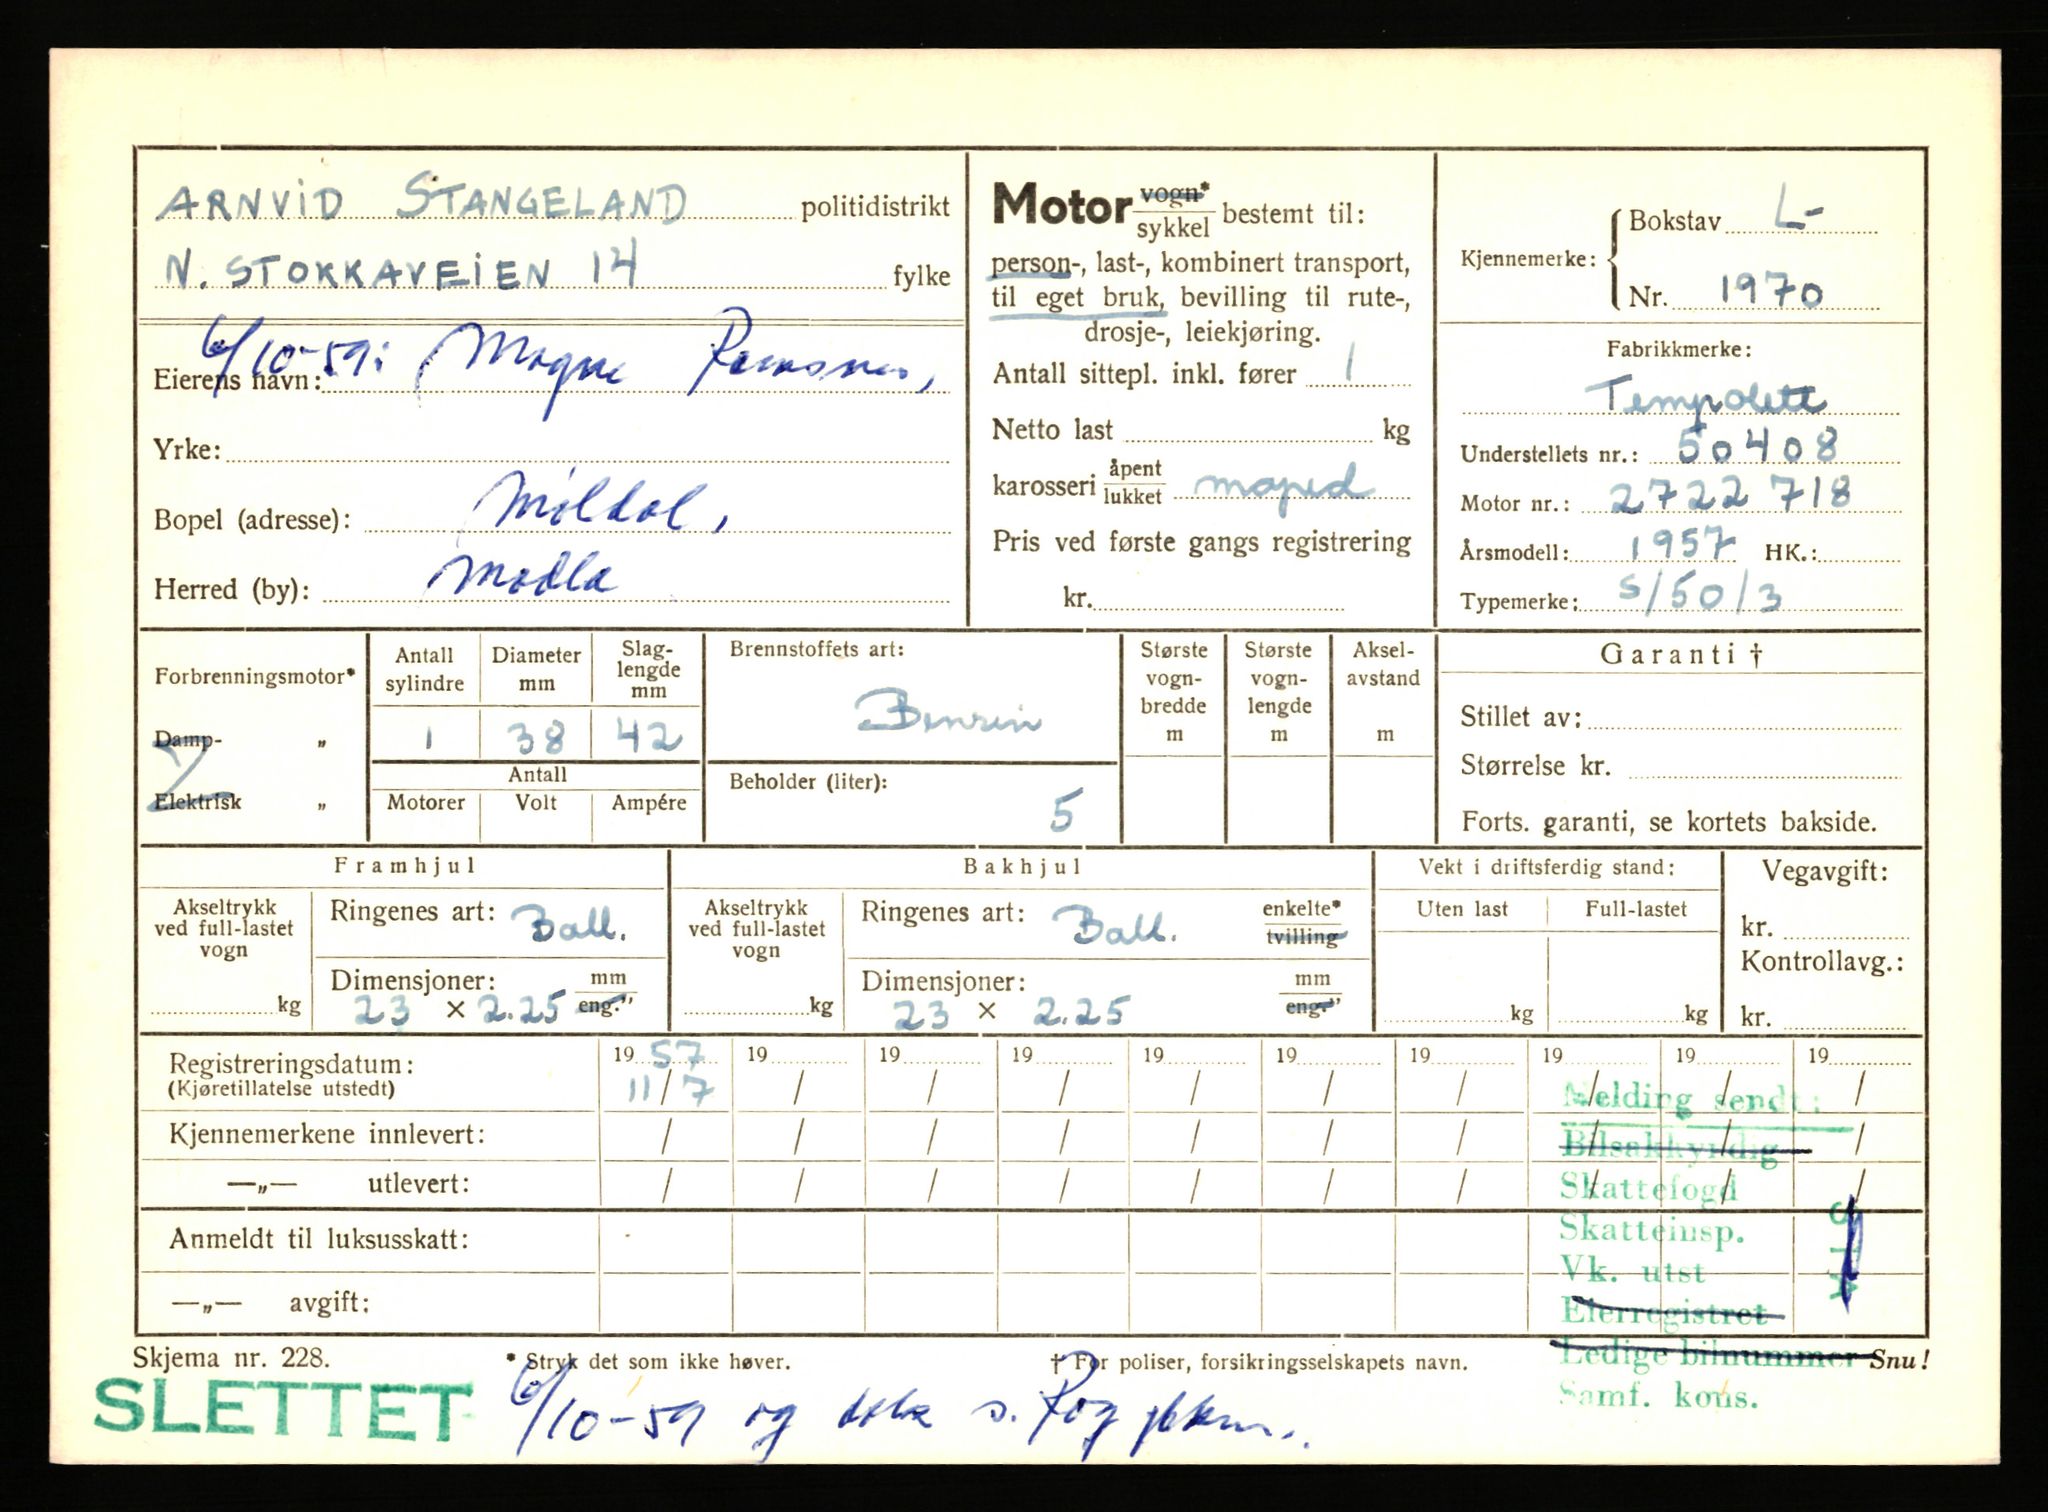 ARNVID STANGELAND politidistrikt
N. STOKKAVEIEN 14 fylke
6/10-59: Magne
Eierens navn:
Yrke:
Bopel (adresse):
Herred (by): Madla
Motor vogn* / sykkel bestemt til:
person-, last-, kombinert transport,
til eget bruk, bevilling til rute-,
drosje-, leiekjøring.
Antall sittepl. inkl. fører 1
Netto last kg
karosseri åpent / lukket moped
Pris ved første gangs registrering
kr.
Kjennemerke: Bokstav L-
Nr. 1970
Fabrikkmerke:
Tempolett
Understellets nr.: 50408
Motor nr.: 2722 718
Årsmodell: 1957 HK.:
Typemerke: S/50/3
Forbrenningsmotor*
Damp- „
Elektrisk „
Antall sylindre Diameter mm Slaglengde mm
1 38 42
Antall
Motorer Volt Ampére
Brennstoffets art:
Bensin
Beholder (liter):
5
Største vogn-bredde m
Største vogn-lengde m
Aksel-avstand m
Garanti †
Stillet av:
Størrelse kr.
Forts. garanti, se kortets bakside.
Framhjul
Akseltrykk
ved full-lastet
vogn
kg
Ringenes art: Ball.
Dimensjoner: mm
23 × 2.25 eng."
Bakhjul
Akseltrykk
ved full-lastet
vogn
kg
Ringenes art: Ball. enkelte*
tvilling
Dimensjoner: mm
23 × 2.25 eng."
Vekt i driftsferdig stand:
Uten last Full-lastet
kg kg
Vegavgift:
kr.
Kontrollavg.:
kr.
Registreringsdatum: 19 57 19 19 19 19 19 19 19 19 19
(Kjøretillatelse utstedt) 11/7 / / / / / / / / /
Kjennemerkene innlevert: / / / / / / / / / /
—„— utlevert: / / / / / / / / / /
Anmeldt til luksusskatt:
—„— avgift:
Melding sendt:
Bilsakkyndig
Skattefogd
Skatteinsp.
Vk. utst
Eierregistret
Ledige bilnummer
Samf. kons.
Skjema nr. 228. * Stryk det som ikke høver. † For poliser, forsikringsselskapets navn. Snu!
SLETTET
6/10-59 og